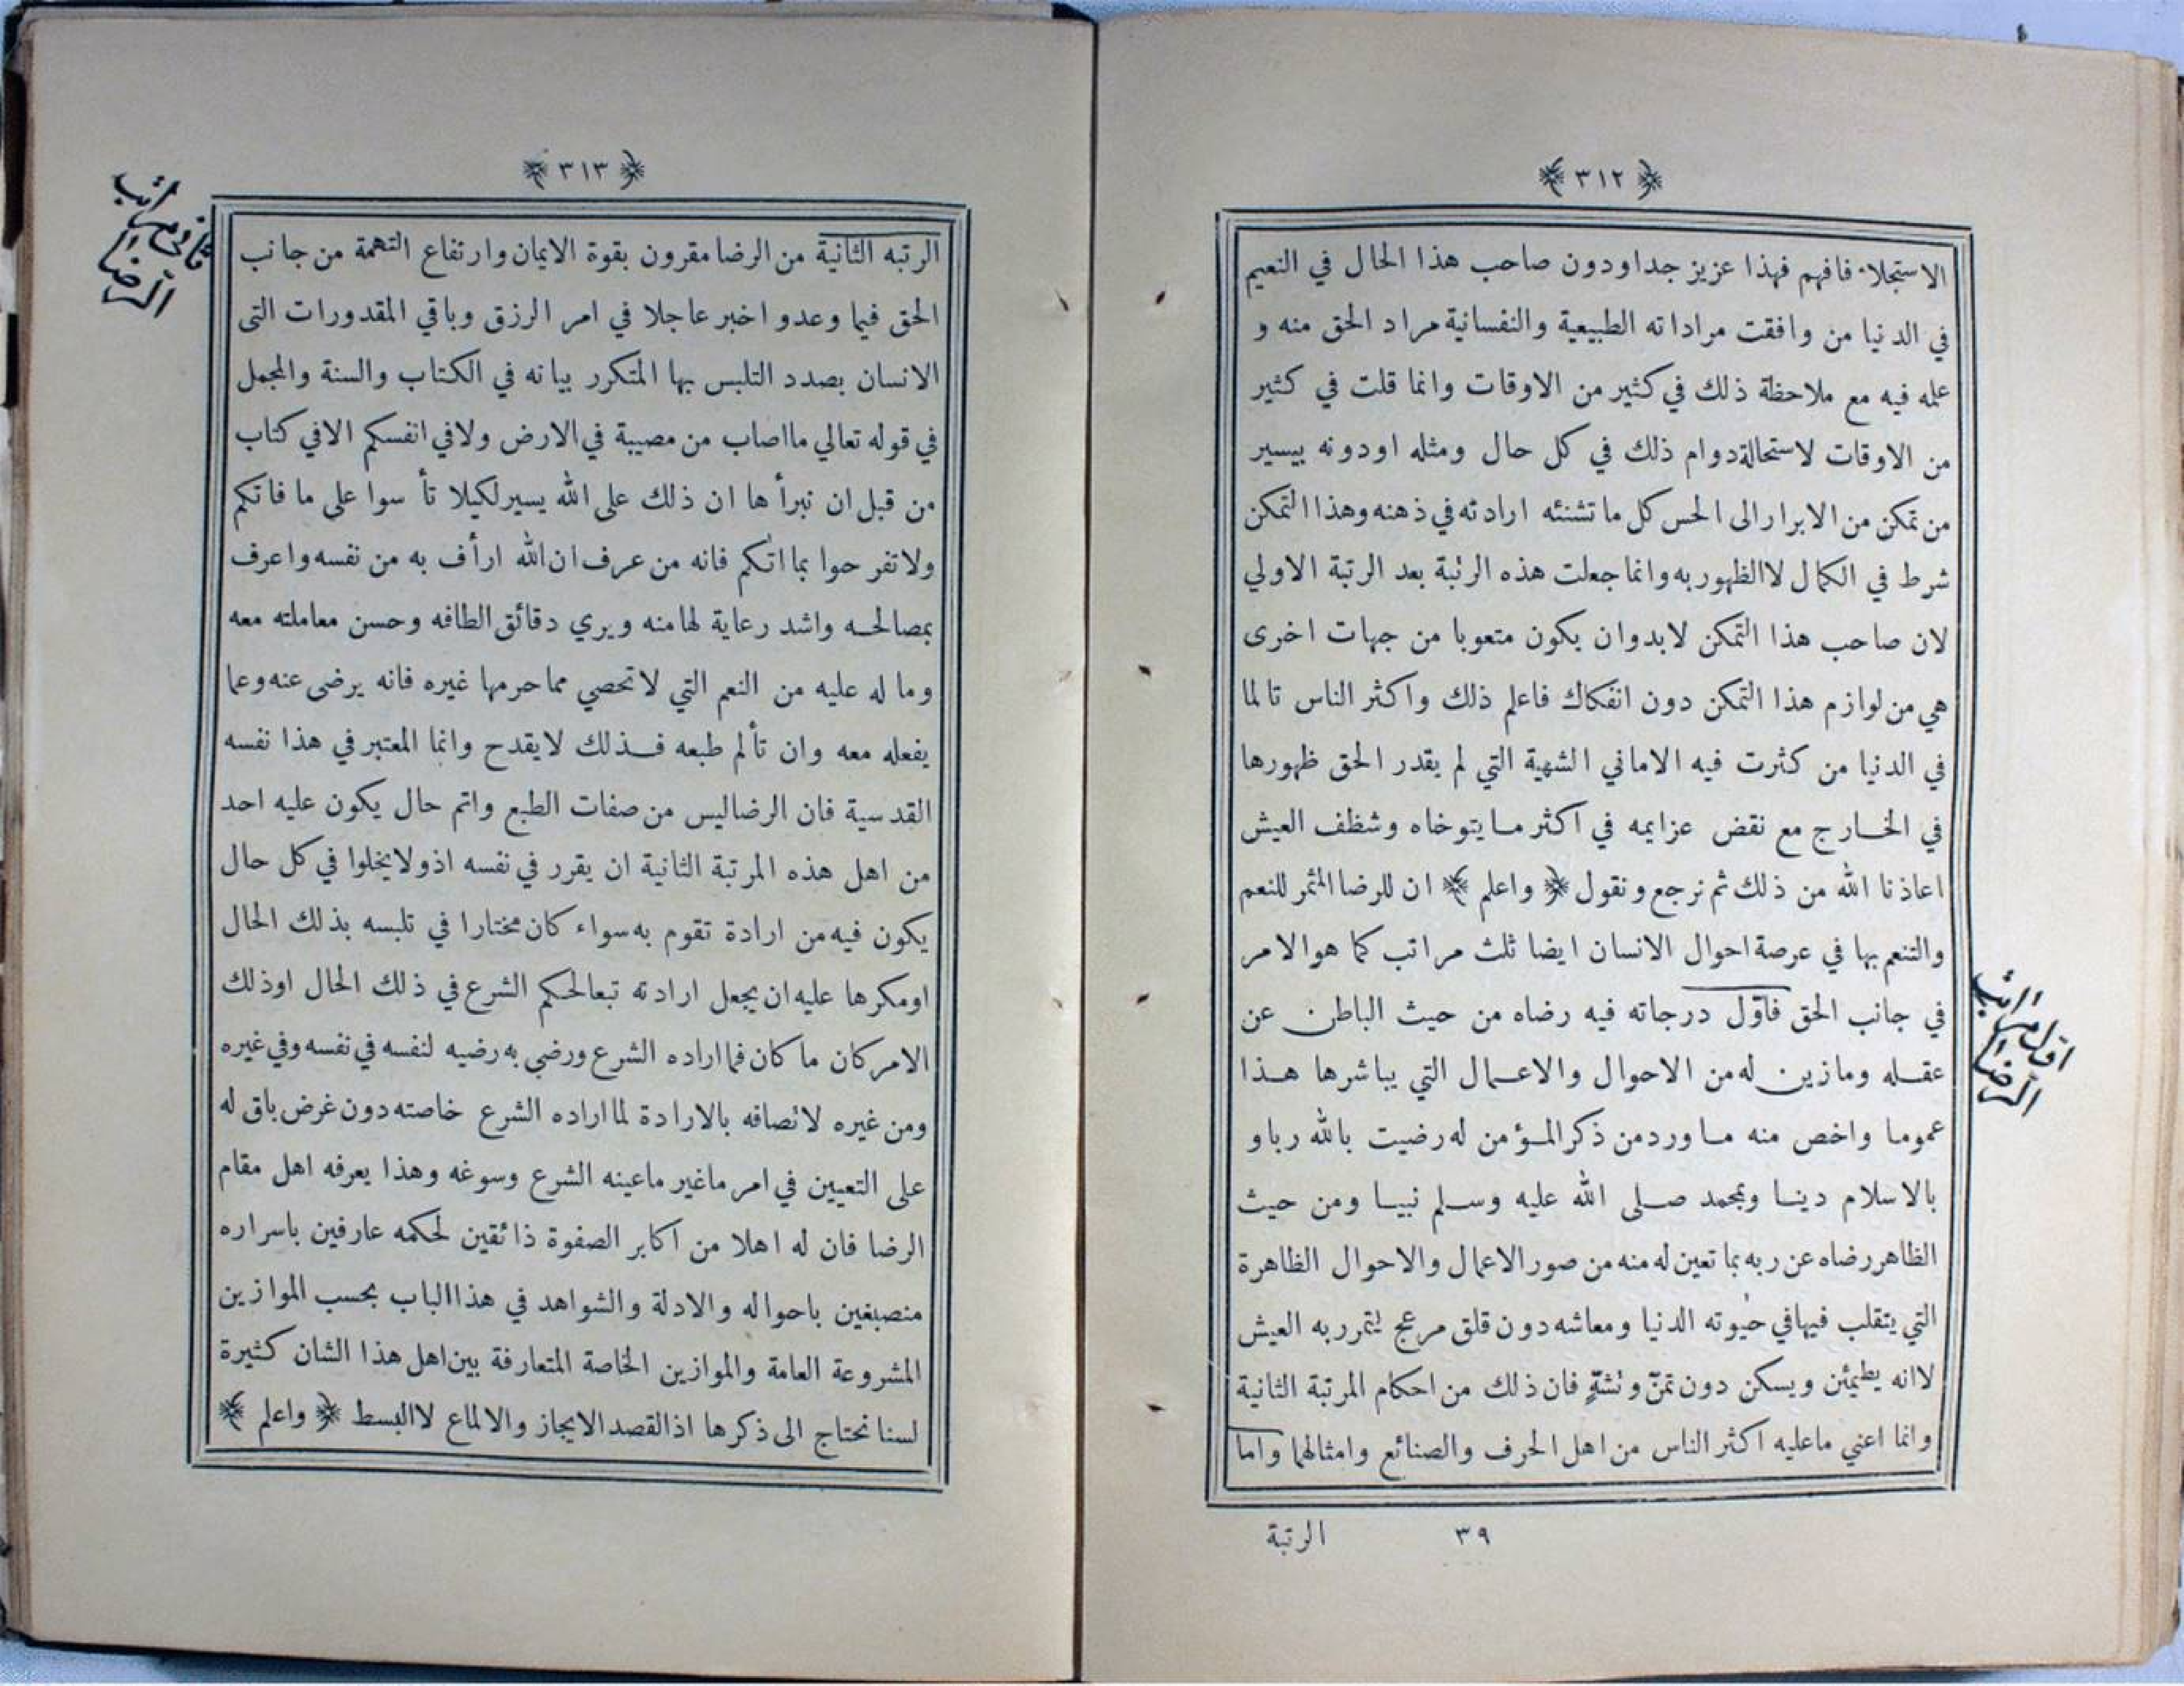 ﴿ ٣١٢ ﴾
الاستجلاء فافهم فهذا عزيز جدا ودون صاحب هذا الحال في النعيم
في الدنيا من وافقت مراداته الطبيعية والنفسانية مراد الحق منه و
علمه فيه مع ملاحظة ذلك في كثير من الاوقات وانما قلت في كثير
من الاوقات لاستحالة دوام ذلك في كل حال ومثله اودونه بيسير
من تمكن من الابراز الى الحس كل ما تنشئه ارادته في ذهنه وهذا التمكن
شرط في الكمال لا الظهور به وانما جعلت هذه الرتبة بعد الرتبة الاولي
لان صاحب هذا التمكن لابد وان يكون متعوبا من جهات اخرى
هي من لوازم هذا التمكن دون انفكاك فاعلم ذلك واكثر الناس تالما
في الدنيا من كثرت فيه الاماني الشهية التي لم يقدر الحق ظهورها
في الخارج مع نقض عزايمه في اكثر ما يتوخاه وشظف العيش
اعاذنا الله من ذلك ثم نرجع ونقول ﴿ واعلم ﴾ ان للرضا المثمر للنعم
والتنعم بها في عرصة احوال الانسان ايضا ثلث مراتب كما هو الامر
في جانب الحق فاوّل درجاته فيه رضاه من حيث الباطن عن
عقله وما زين له من الاحوال والاعمال التي يباشرها هذا
عموما واخص منه ما ورد من ذكر المؤمن له رضيت بالله ربا و
بالاسلام دينا وبمحمد صلى الله عليه وسلم نبيا ومن حيث
الظاهر رضاه عن ربه بما تعين له منه من صور الاعمال والاحوال الظاهرة
التي يتقلب فيها في حيوته الدنيا ومعاشه دون قلق مزعج يتمرر به العيش
لا انه يطمئن ويسكن دون تمنّ وتشهّ فان ذلك من احكام المرتبة الثانية
وانما اعني ما عليه اكثر الناس من اهل الحرف والصنائع وامثالها واما
اول مراتب
الرضا
٣٩
الرتبة
﴿ ٣١٣ ﴾
الرتبه الثانية من الرضا مقرون بقوة الايمان وارتفاع التهمة من جانب
الحق فيما وعد واخبر عاجلا في امر الرزق وباقي المقدورات التى
الانسان بصدد التلبس بها المتكرر بيانه في الكتاب والسنة والمجمل
في قوله تعالي ما اصاب من مصيبة في الارض ولا في انفسكم الا في كتاب
من قبل ان نبرأها ان ذلك على الله يسير لكيلا تأسوا على ما فاتكم
ولا تفرحوا بما اتٰكم فانه من عرف ان الله ارأف به من نفسه واعرف
بمصالحه واشد رعاية لها منه ويري دقائق الطافه وحسن معاملته معه
وما له عليه من النعم التي لا تحصي مما حرمها غيره فانه يرضى عنه وعما
يفعله معه وان تألم طبعه فذلك لا يقدح وانما المعتبر في هذا نفسه
القدسية فان الرضا ليس من صفات الطبع واتم حال يكون عليه احد
من اهل هذه المرتبة الثانية ان يقرر في نفسه اذ ولا يخلوا في كل حال
يكون فيه من ارادة تقوم به سواء كان مختارا في تلبسه بذلك الحال
اومكرها عليه ان يجعل ارادته تبعا لحكم الشرع في ذلك الحال اوذلك
الامر كان ما كان فما اراده الشرع ورضي به رضيه لنفسه في نفسه وفي غيره
ومن غيره لاتصافه بالارادة لما اراده الشرع خاصته دون غرض باق له
على التعيين في امر ما غير ما عينه الشرع وسوغه وهذا يعرفه اهل مقام
الرضا فان له اهلا من اكابر الصفوة ذائقين لحكمه عارفين باسراره
منصبغين باحواله والادلة والشواهد في هذا الباب بحسب الموازين
المشروعة العامة والموازين الخاصة المتعارفة بين اهل هذا الشان كثيرة
لسنا نحتاج الى ذكرها اذ القصد الايجاز والالماع لا البسط ﴿ واعلم ﴾
ثاني مراتب
الرضا